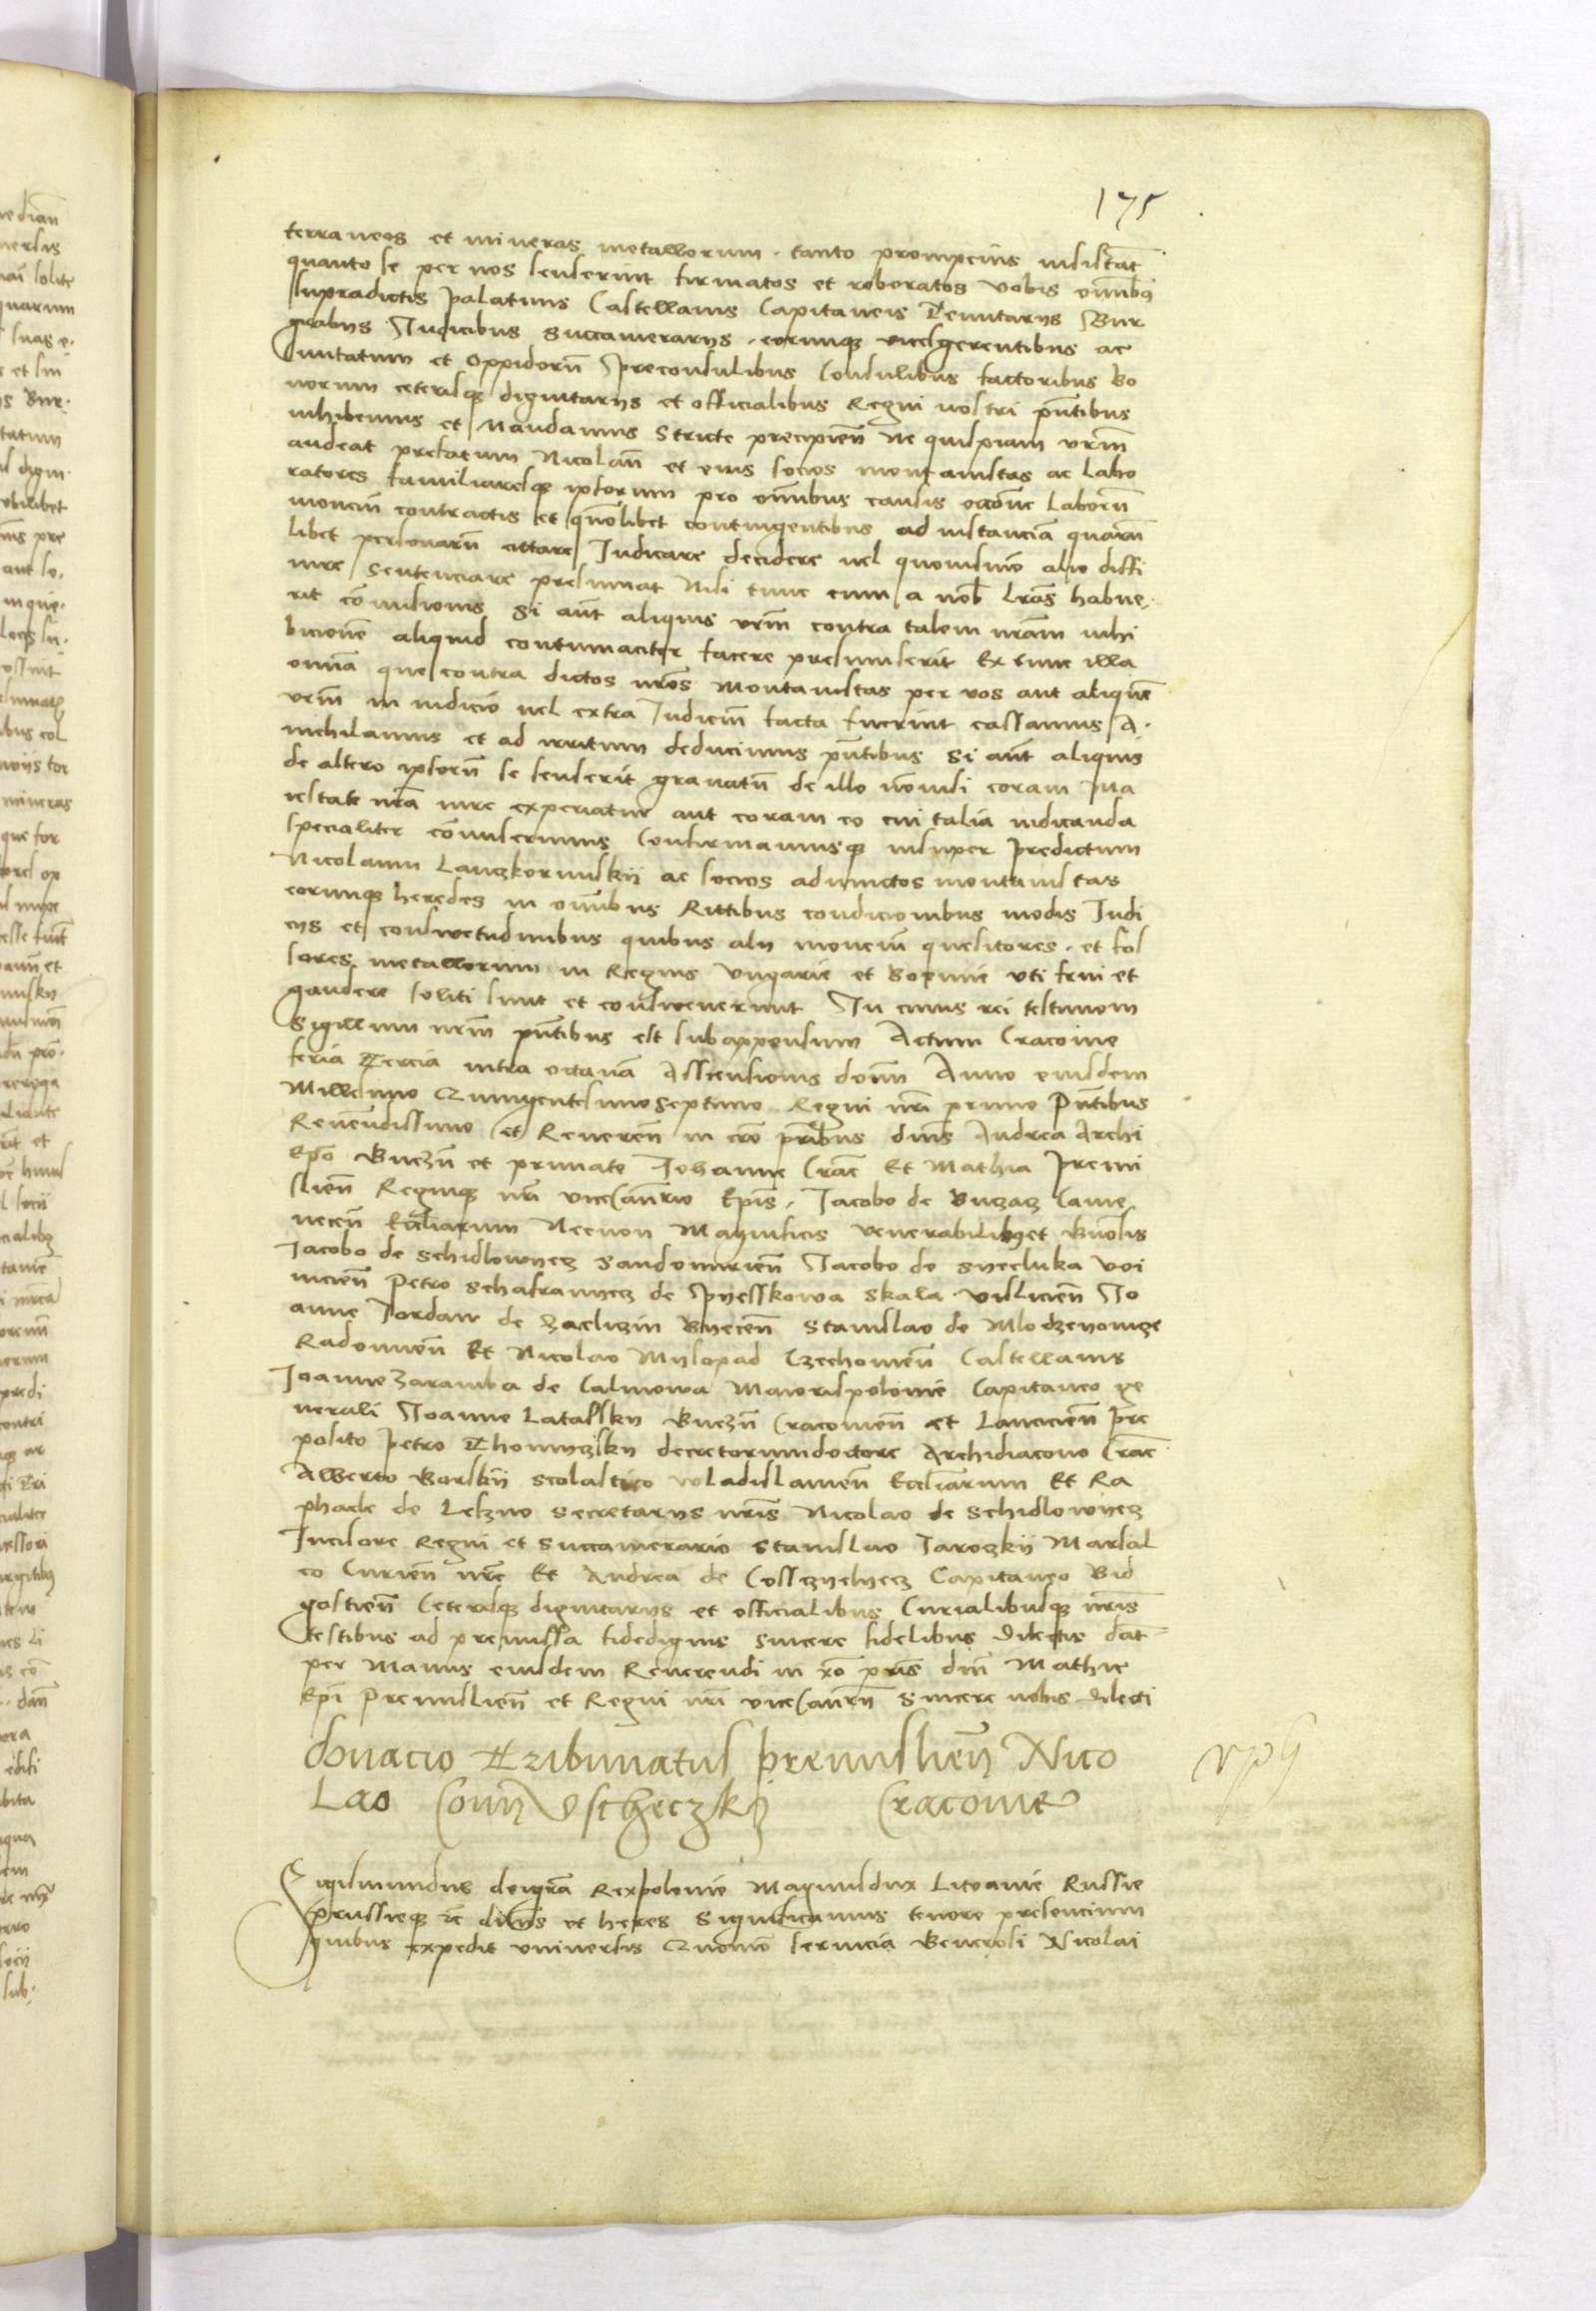 175
terraneos et mineras metallorum. tanto prompcius insistāt
quanto se per nos senserint firmatos et roboratos vobis om̄ibus
supradictis palatinis Castellanis Capitaneis Tenutarijs Bur
grabijs Judicibus succamerarijs. eorumq̨ vicesgerentibus ac
Civitatum et oppidorū preconsulibus Consulibus factoribus bo
norum ceterisq̨ dignitarijs et officialibus Regni nostri pn̄tibus
inhibemus et Mandamus stricte precipien̄ ne quispiam vrm̄
audeat prefatum Nicolaū et eius socios montanistas ac labo
ratores familiaresq̨ ipsorum pro om̄ibus causis occōne laborū
monciū contractis et qm̄olibet contingentibus ad instanciā quarū
libet personarū cittare Judicare decidere vel quovismō alio diffi
nire sentenciare presumat Nisi tunc cum a nob̄ lrās habue.
rit cōmissionis Si aūt aliquis vrm̄ contra talem nrām inhi
bicionē aliquid contumaciter facere presumserit Ex tunc illa
om̄ia que contra dictos nrōs montanistas per vos aut aliquē
vrm̄ in iudicio vel extra Judiciū facta fuerint cassamus A.
nichilamus et ad irritum deducimus pn̄tibus Si aūt aliquis
de altero ipsorū se senserit gravatū de illo nō nisi coram Ma
iestate nrā iure experiatur aut coram eo cui talia iudicanda
specialiter cōmiserimus Confirmamusq̨ insuper predictum
Nicolaum Lanczkorunskij ac socios adiunctos montanistas
eorumq̨ heredes in om̄ibus Rittibus condicionibus modis Judi
cijs et consuetudinibus quibus alij monciū quesitores. et fos
sores metallorum in Regnis Ungarie et Boemie uti frui et
gaudere soliti sunt et consueuerunt In cuius rei testimom
Sigillum nrm̄ pn̄tibus est subappensum Actum Cracouie
feria Tercia infra octavā Ascensionis domī Anno eiusdem
Millesimo Quingentesimoseptimo Regni nrī primo Pn̄tibus
Reuerendissimo et Reueren̄ in cro pr̄ibus dnīs Andrea Archi
ep̄o Gnezn̄ et primate Johanne Crac̄ Et Mathia premi
slien̄ Regniq̨ nrī vicecan̄rio Ep̄is. Jacobo de Buczacz Came
necen̄ Eccl̄iarum Necnon Magnificis venerabilibus et Gn̄osis
Jacobo de Schidlowyecz Sandomirien̄ Jacobo de Syecluka Voi
nicien̄ Petro Schafranyecz de Pyesskowa Skala. Vislicien̄ Jo
anne Jordan de Zacliczin Byecen̄ Stanislao de Mlodzeyowicze
Radomien̄ Et Nicolao Mylopad Czechowien̄ Castellanis
Joanne Zaramba de Calinowa Maiorispolonie Capitaneo ge
nerali Joanne Latalsky Gnezn̄ Cracouien̄ et Lancicien̄ pre
posito Petro Thomyczsky decretorumdoctore Archidiacono Crac̄
Alberto Gorskij scolastico Wladislauien̄ Eccl̄iarum Et Ra
phaele de Leszno Secretarijs nrīs Nicolao de Schidlowyecz
Incisore Regni et succamerario Stanislao Jaroczkij Marsal
co Curien̄ nrē Et Andrea de Cossczyelyecz Capitaneo Bid
gostien̄ Ceterisq̨ dignitarijs et officialibus Curialibusq̨ nrīs
testibus ad premissa fidedignis sincere fidelibus dilectis dat
per Manus eiusdem Reuerendi in xrō pr̄is dnī Mathie
Ep̄i Premislien̄ et Regni nrī vicecan̄rij sincere nobis dilecti
Donacio Tribunatus premislien̄ Nico
lao Conn̄ Uscheczky Cracouie
Sigismundus deigrā Rexpolonie Magnusdux Litvanie Russie
prussieq̨ ēc dn̄s et heres Significamus tenore presencium
quibus expedit universis Quomō servicia Generosi Nicolai